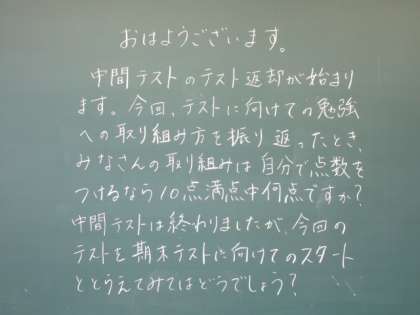 おはようございます。
中間テストのテスト返却が始まり
ます。今回、テストに向けての勉強
への取り組み方を振り返ったとき、
みなさんの取り組みは自分で点数を
つけるなら10点満点中何点ですか?
中間テストは終わりましたが、今回の
テストを期末テストに向けてのスタート
ととらえてみてはどうでしょう?